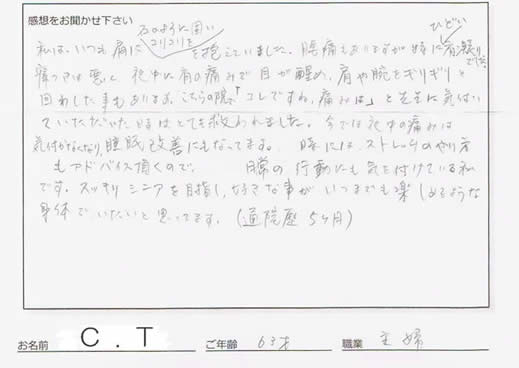 感想をお聞かせ下さい
私は、いつも肩に石のように固いコリコリを抱えていました。腰痛もありますが特に肩はひどい凝りでした。
寝つきは悪く 夜中に肩の痛みで目が醒め、肩や腕をギリギリと
回わした事もあります。こちらの院で「コレですね、痛みは」と先生に気付い
ていただいた時はとても救われました。今では夜中の痛みは
気付かなくなり、睡眠改善にもなってます。 時には、ストレッチのやり方
もアドバイス頂くので、 日常の行動にも気を付けている私
です。スッキリシニアを目指し、好きな事がいつまでも楽しめるような
身体でいたいと思ってます。(通院歴 5ヶ月)
お名前 C.T ご年齢 63才 職業 主婦